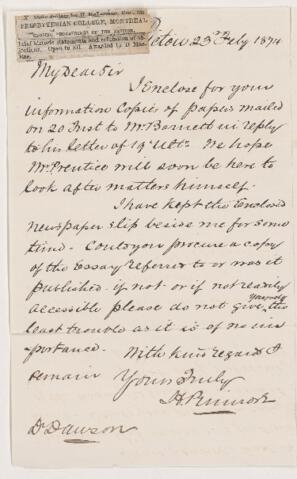 PRESBYTERIAN COLLEGE, MONTREAL
Pictou 23rd Feby 1874
My Dear Sir
I enclose for your
information Copies of papers mailed
on 20 Inst to Mr Barnett in reply
to his letter of 14 Ultº. We hope
Mr Prentice will soon be here to
look after matters himself.
I have kept the Enclosed
Newspaper slip beside me for some
time. Could you procure a copy
of the Essay referred to or was it
published. if not or if not readily
accessible please do not give yourself the
least trouble as it is of no im
portance. With kind regards I
remain Yours Truly
Dr Dawson